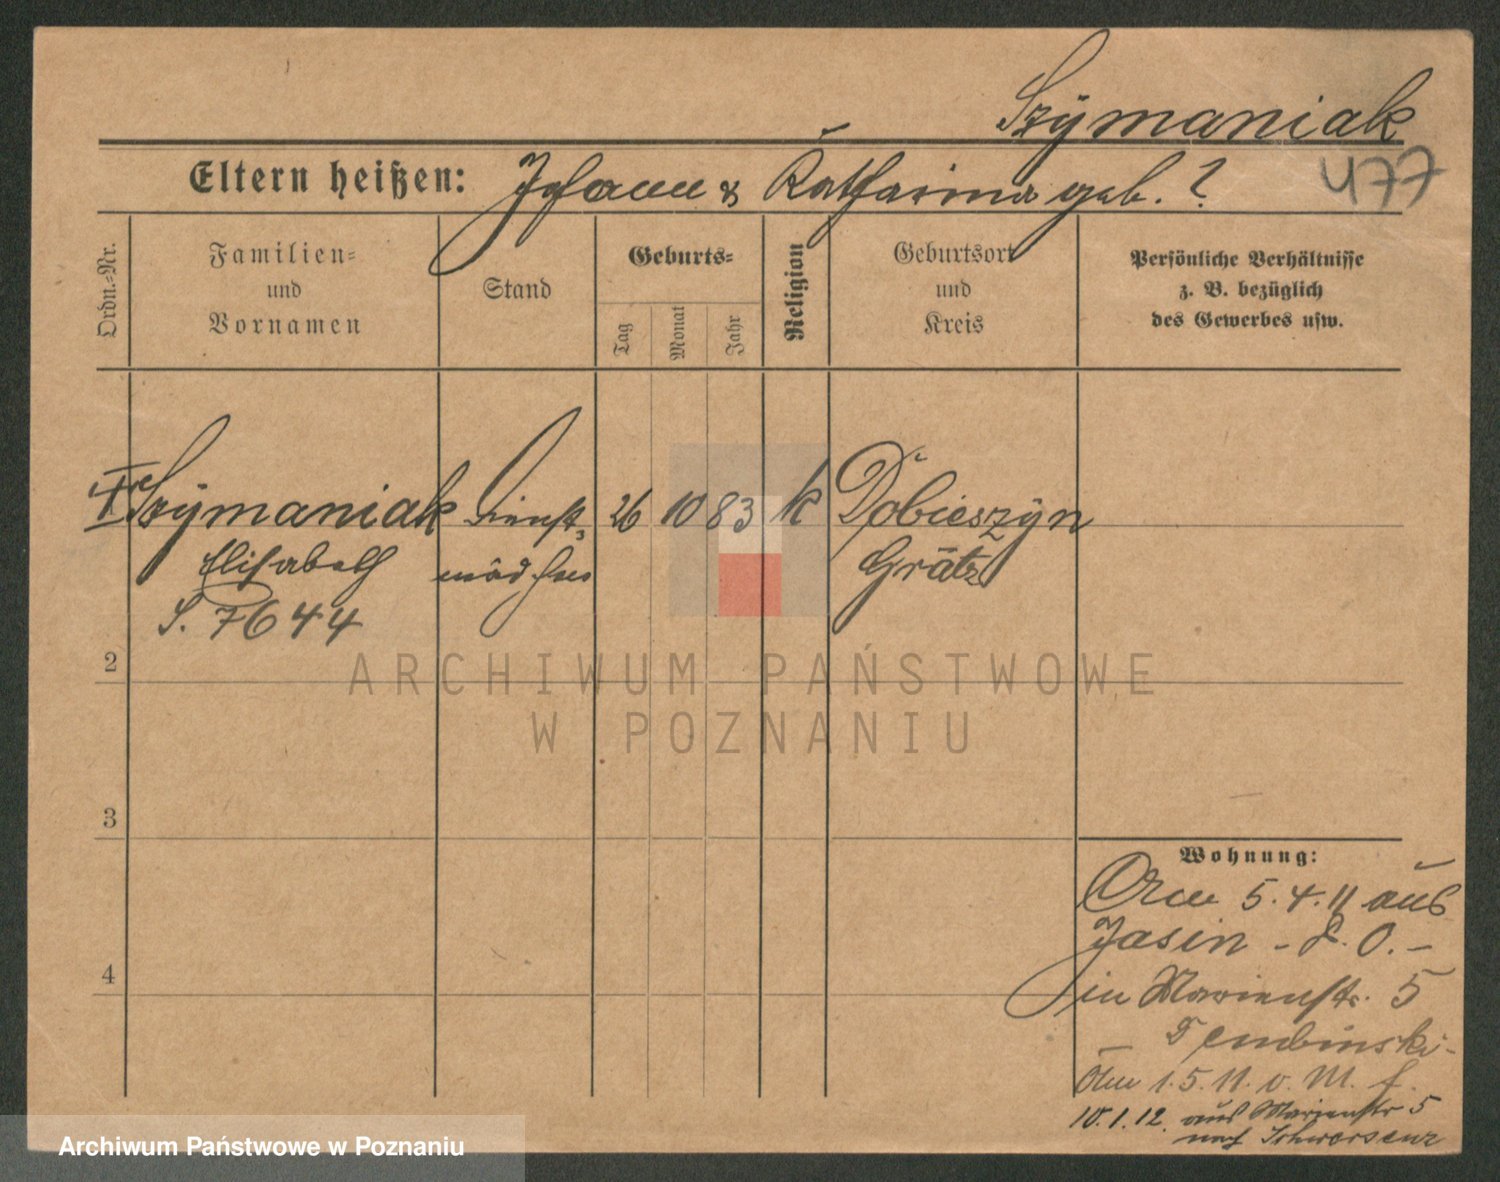 Szymaniak
477
Eltern heißen: Johann & Katharina geb. ?
Ordn.-Nr.
Familien-
und
Vornamen
Stand
Geburts-
Tag
Monat
Jahr
Religion
Geburtsort
und
Kreis
Persönliche Verhältnisse
z. B. bezüglich
des Gewerbes usw.
Szymaniak Dienst- 26 10 83 k Dobieszyn
Elisabeth mädchen Grätz
S. 7644
2
3
4
Wohnung:
5.4.11 aus
Jasin - P. O. -
in Marienstr. 5
Dembinski-
1.5.11. v. M. f.
10.1.12. aus Marienstr 5
nach Schwersenz
ARCHIWUM PAŃSTWOWE
W POZNANIU
Archiwum Państwowe w Poznaniu